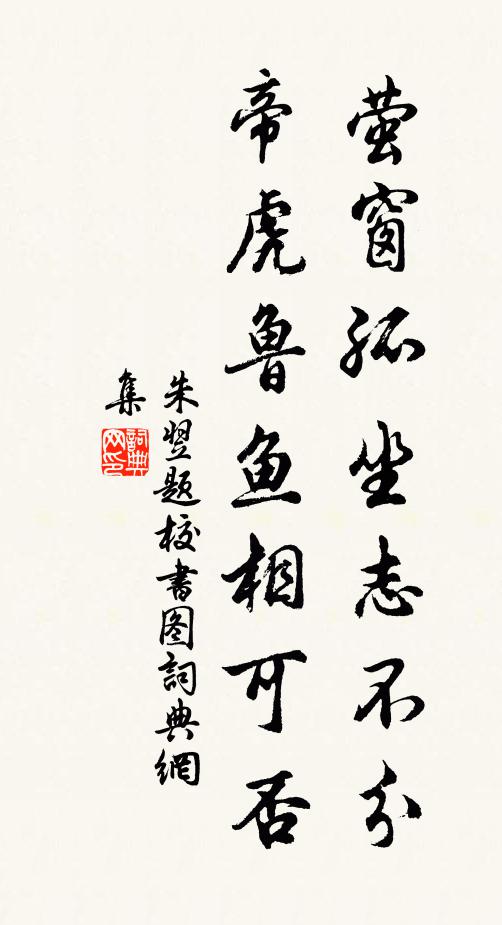 萤窗孤坐志不分
帝虎鲁鱼相可否
朱翌题校书图詞典網
集
詞典网印